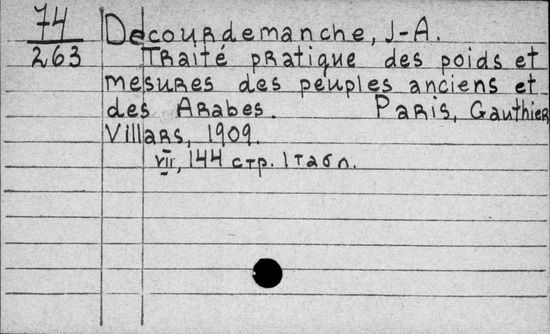 74
263
Decourdemanche, J-A.
Traité pratique des poids et
mesures des peuples anciens et
des Arabes. Paris, Gauthier
Villars, 1909.
VII, 144 стр. 1 табл.